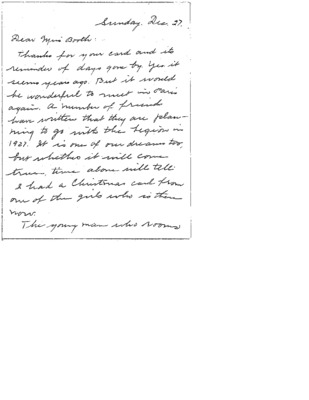 Sunday, Dec. 27.
Dear Miss Booth:
Thanks for your card and its
reminder of days gone by. Yes it
seems years ago. But it would
be wonderful to meet in Paris
again. A number of friends
have written that they are plan-
ning to go with the Legion in
1927. It is one of our dreams too,
but whether it will come
true, time alone will tell.
I had a Christmas card from
one of the girls who is there
now.
The young man who rooms